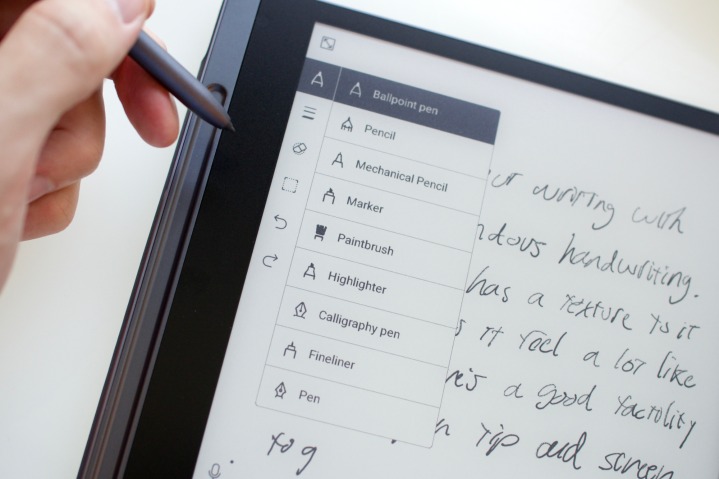 Ballpoint pen
Pencil
Mechanical Pencil
Marker
Paintbrush
Highlighter
Calligraphy pen
Fineliner
Pen
writing with
handwriting.
has a texture to it
it feel a lot like
a good tactility
tip and screen